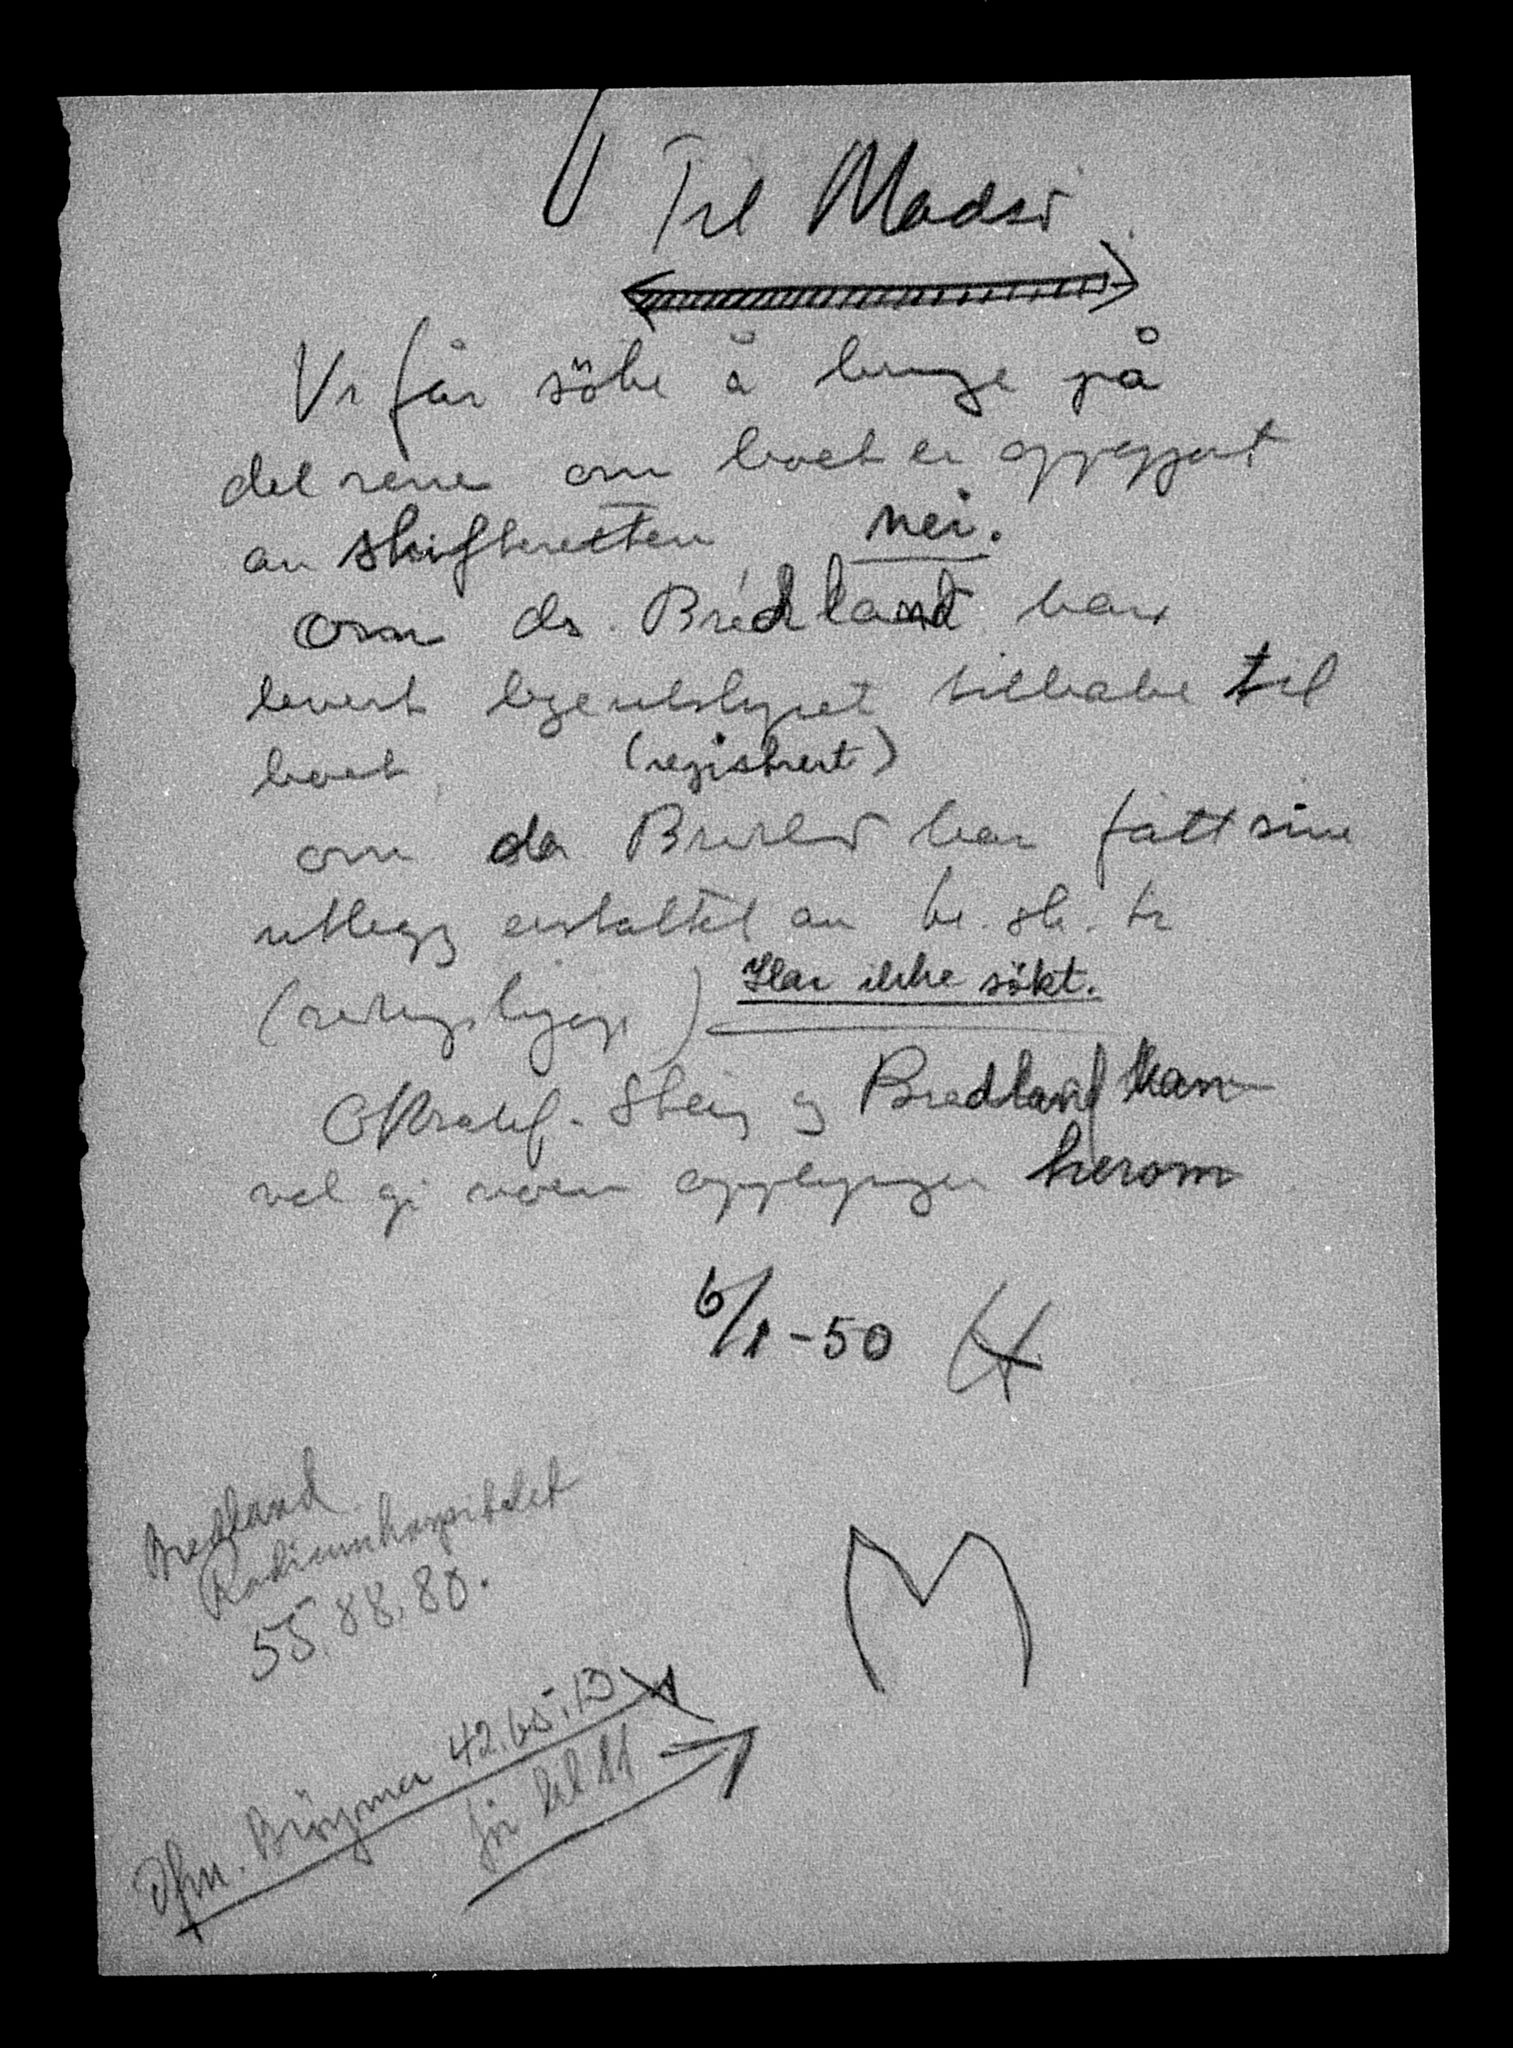 Til Madsø
Vi får söke å bringe på
det rene om boet er oppgjort
av skifteretten nei.
Om ds. Bredland har
levert legeutstyret tilbake til
boet (registrert)
om da Bredland har fått sine
utlegg erstattet av
Har ikke sökt.
og Bredland kan
vel gi noen opplysninger herom
6/1-50 H
Bredland
Radiumhospitalet
55.88.80.
M
42.65.13
før kl 11